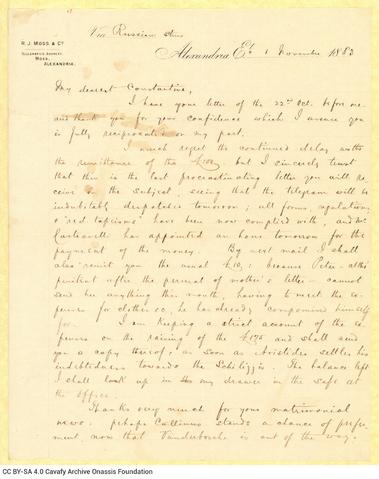 Via Russian
R. J. MOSS & Co.
TELEGRAPHIC ADDRESS
MOSS,
ALEXANDRIA.
Alexandria, Et. 1 November 1883
My dearest Constantine,
I have your letter of the 22nd Oct. before me
and thank you for your confidence which I assure you
is fully reciprocated on my part.
I much regret the continued delay with
the remittance of the but I sincerely trust
that this is the last procrastinating letter you will re-
ceive on the subject, seeing that the telegram will be
indubitably despatched tomorrow; all forms, regulations,
& "red tapeisms" have been now complied with, and Mr
has appointed an hour tomorrow for the
payment of the money. By next mail I shall
also remit you the usual £10; because Peter - altho'
penitent after the perusal of mother's letter - cannot
send her anything this month, having to meet the ex-
penses for clothes &c, he has already compromised himself
for. I am keeping a strict account of the ex-
penses on the raising of the and shall send
you a copy thereof, as soon as Aristides settles his
indebtedness towards the The balance left
I shall lock up in my drawer in the safe at
the office.
Thanks very much for your matrimonial
news: perhaps Callinus stands a chance of prefer-
ment, now that Vanderborcht is out of the way.
CC BY-SA 4.0 Cavafy Archive Onassis Foundation